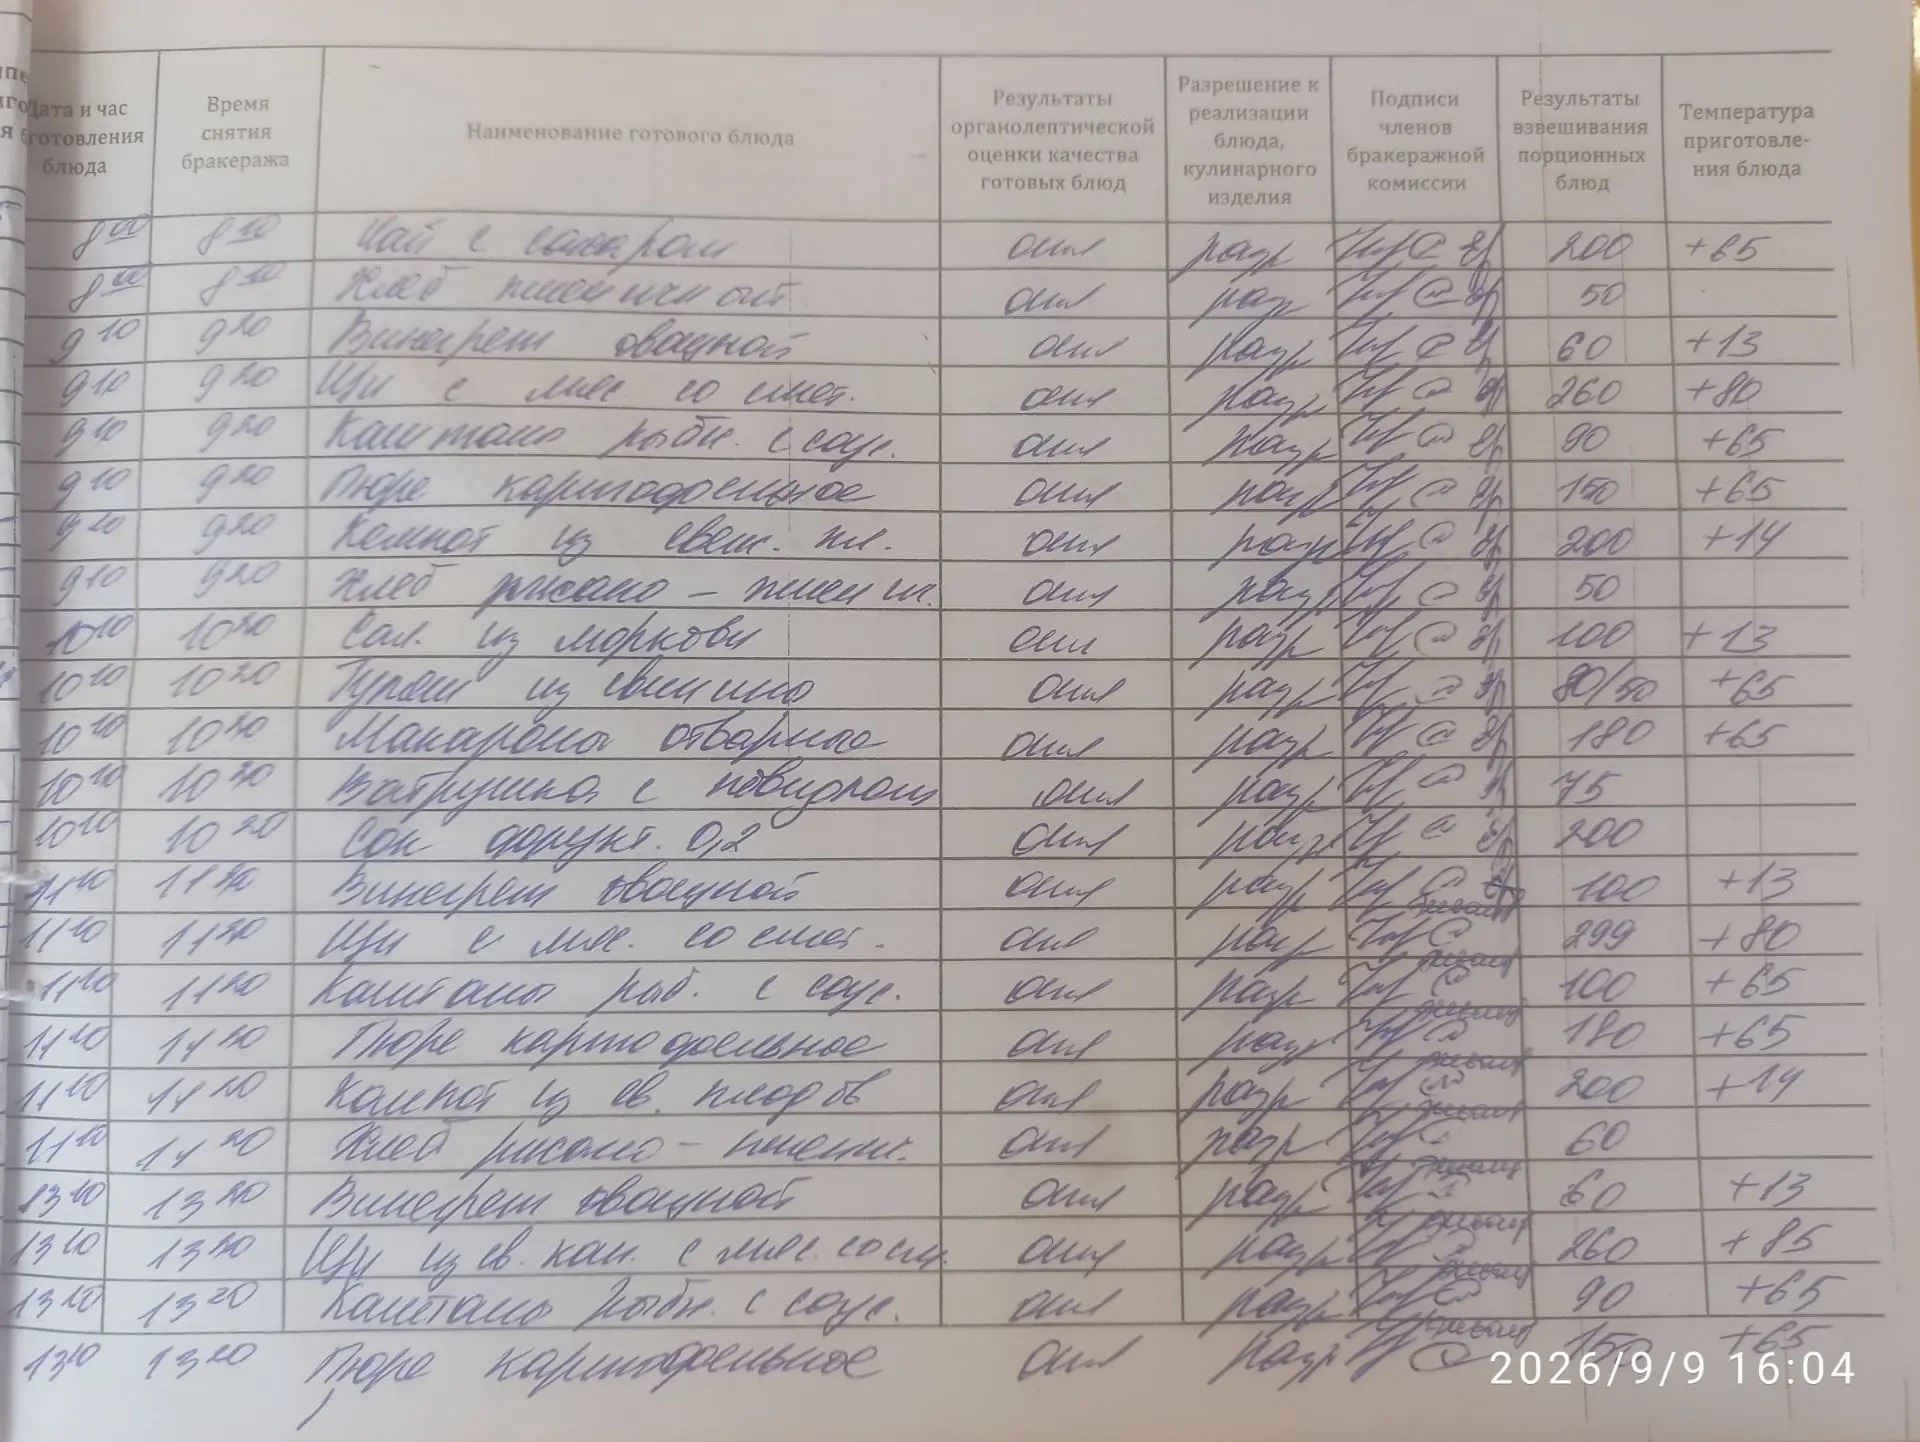 Дата и час готовления блюда
Время снятия бракеража
Наименование готового блюда
Результаты органолептической оценки качества готовых блюд
Разрешение к реализации блюда, кулинарного изделия
Подписи членов бракеражной комиссии
Результаты взвешивания порционных блюд
Температура приготовле-ния блюда
8 00 8 10 Чай с сахаром отл разр 200 +65
8 00 8 10 Хлеб пшеничный отл разр 50
9 10 9 20 Винегрет овощной отл разр 60 +13
9 10 9 20 Щи с мяс со смет. отл разр 260 +80
9 10 9 20 рыбн. с соус. отл разр 90 +65
9 10 9 20 Пюре картофельное отл разр 150 +65
9 20 Компот из свеж. пл. отл разр 200 +14
9 10 9 20 Хлеб ржано - пшен отл разр 50
10 10 10 20 Сал. из моркови отл разр 100 +13
10 10 10 20 Гуляш из свинины отл разр 80/50 +65
10 10 10 20 Макароны отварные отл разр 180 +65
10 10 10 20 Ватрушка с повидлом отл разр 75
10 10 10 20 Сок фрукт. 0,2 отл разр 200
11 10 11 20 Винегрет овощной отл разр 100 +13
11 10 11 20 Щи с мяс. со смет. отл разр 299 +80
11 10 11 20 рыб. с соус. отл разр 100 +65
11 10 11 20 Пюре картофельное отл разр 180 +65
11 10 11 20 Компот из св. плодов отл разр 200 +14
11 10 11 20 Хлеб ржано - пшенич. отл разр 60
13 10 13 20 Винегрет овощной отл разр 60 +13
13 10 13 20 Щи из св. кап. с мяс. со см. отл разр 260 +85
13 10 13 20 рыбн. с соус. отл разр 90 +65
13 10 13 20 Пюре картофельное отл разр 150 +65
2026/9/9 16:04